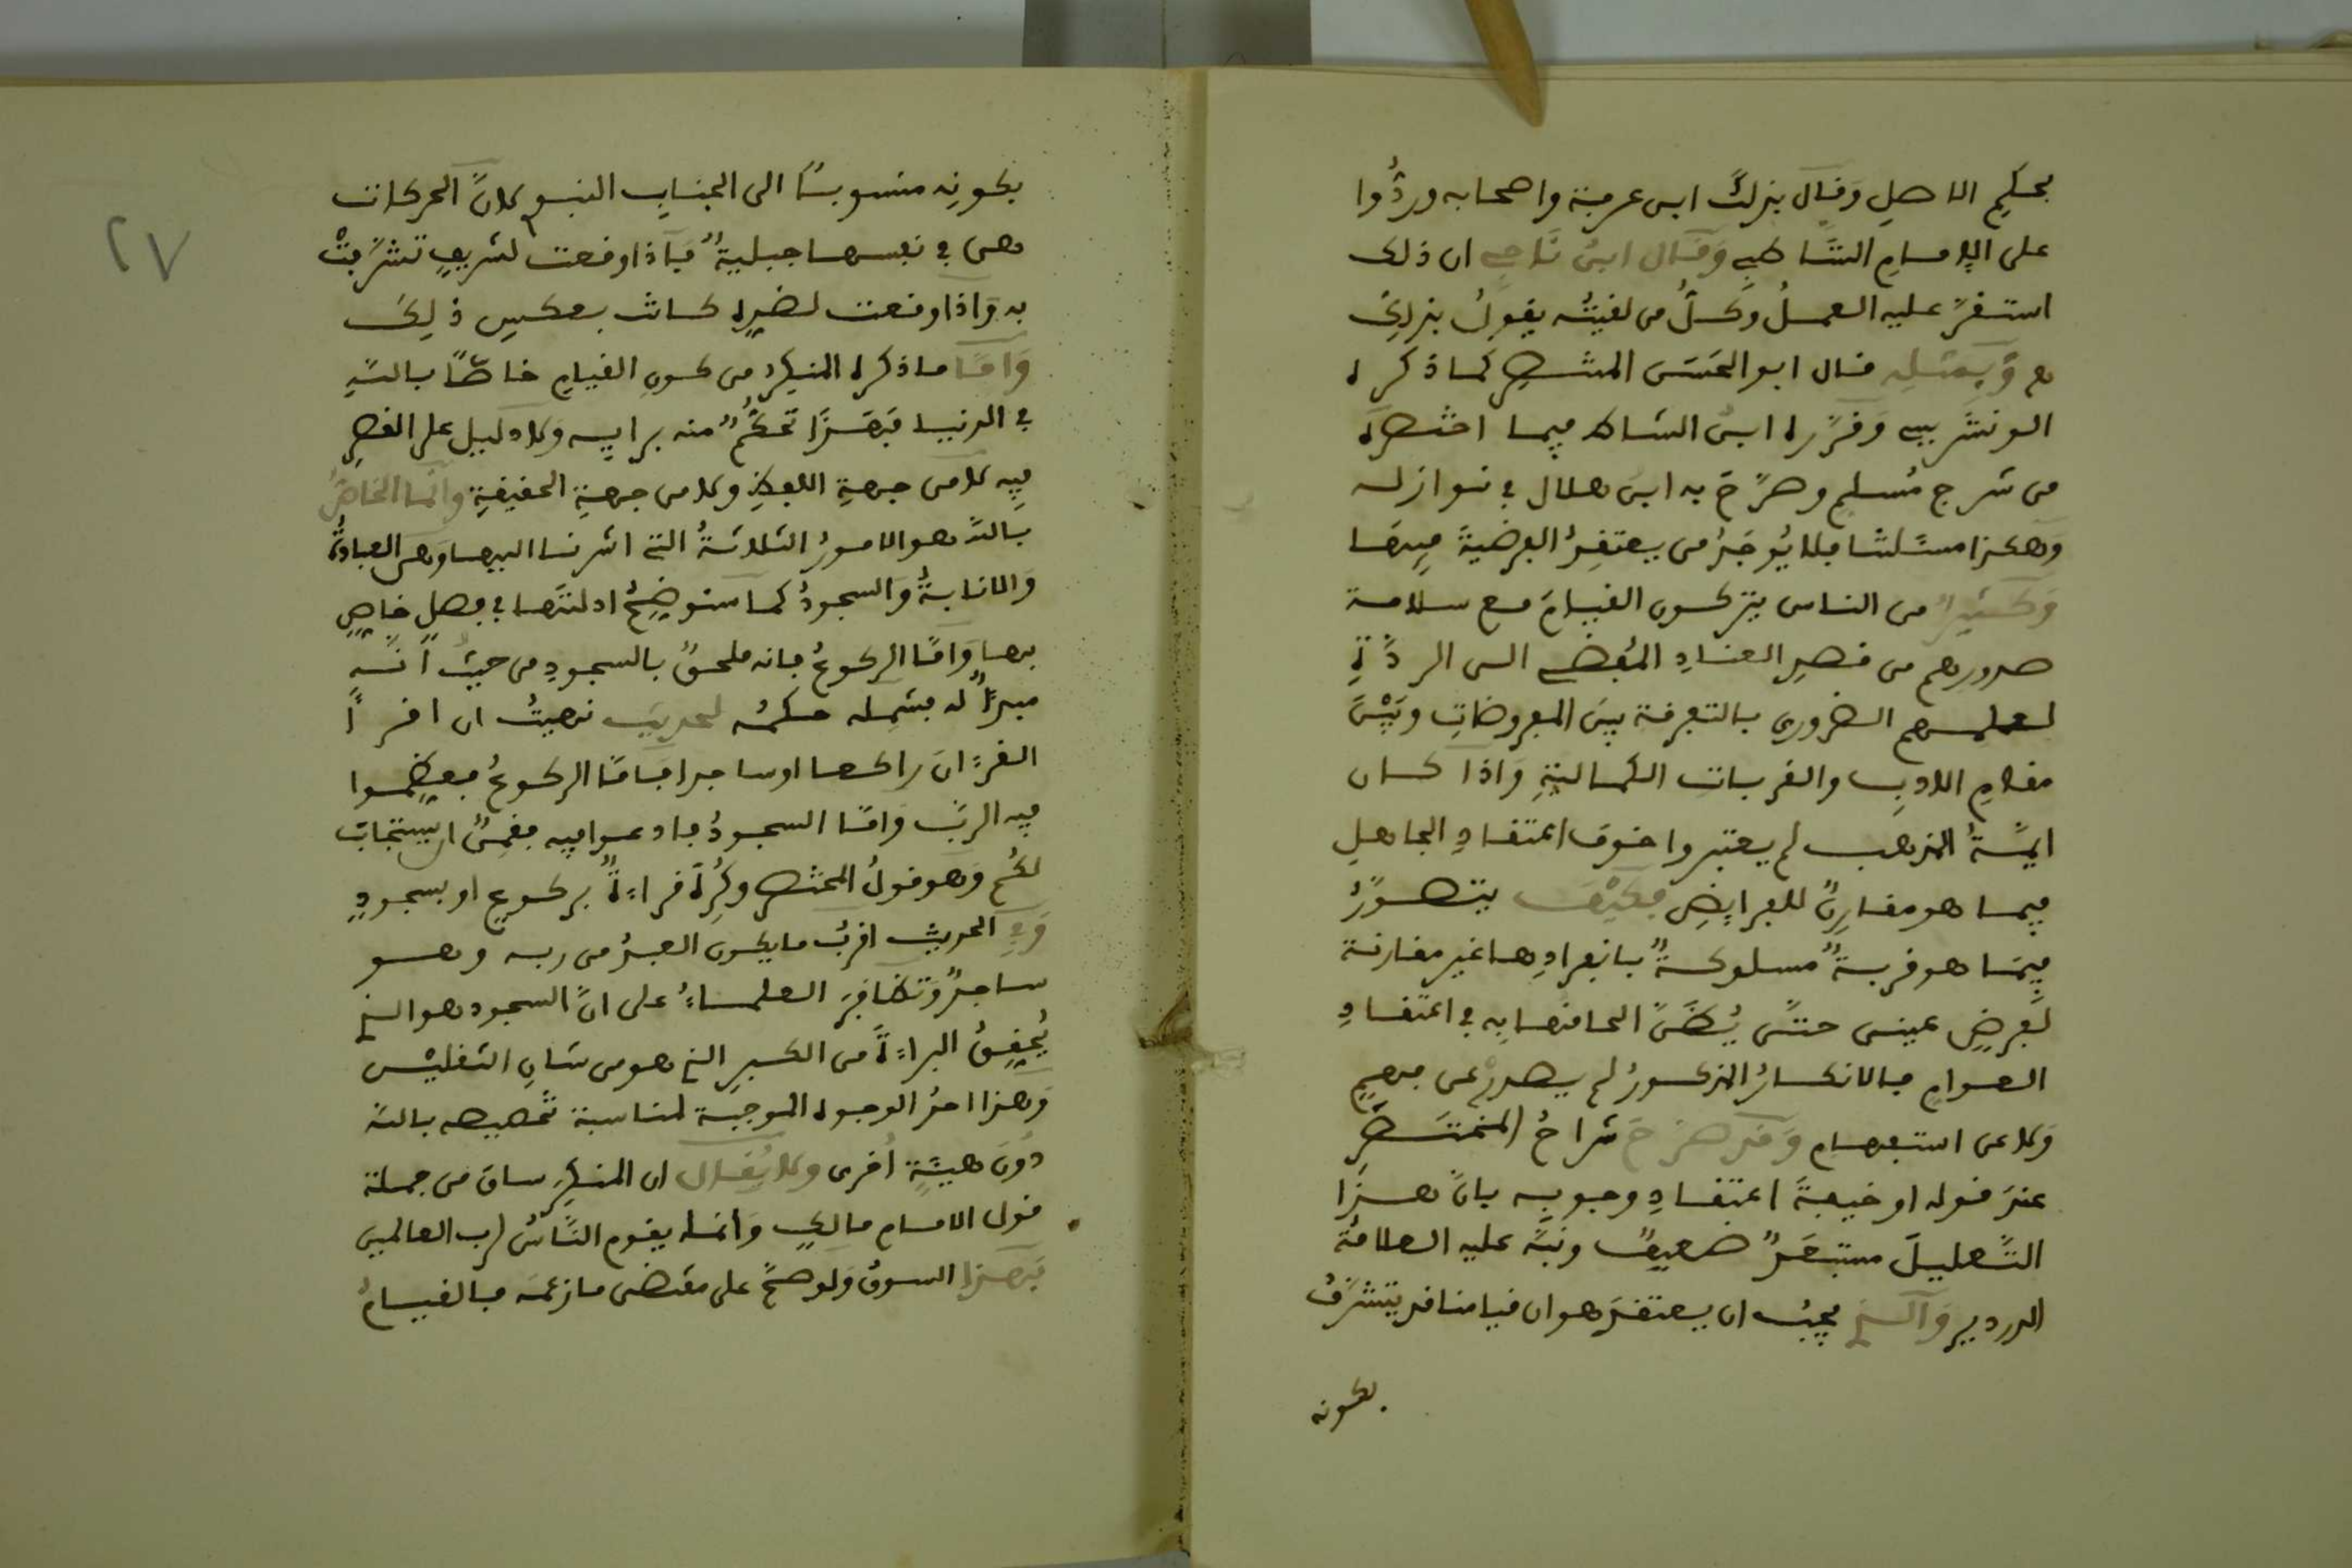 بحكم الاصل وقال بذلك ابن عرفة واصحابه وردُّوا
على الإمام الشاطبي وقال ابن ناجي ان ذلك
استقرَّ عليه العملُ وكلُّ من لقيتُه يقول بذلك
هـ وبمثله قال ابو الحسن المنتصر كما ذكره
الونشريسي وقرَّره ابن الشاط فيما اختصره
من شرح مُسلم وصرَّح به ابن هلال في نوازله
وهكذا مسئلتنا فلا يُوجَدُ من يعتقد الفرضية فيها
وكثيرا من الناس يتركون القيام مع سلامة
صدورهم من قصد العناد المُفضي الى الردَّة
لعلمهم الضروري بالتفرقة بين المفروضات وبين
مقام الادب والقربات الكمالية واذا كان
ايمَّةُ المذهب لم يعتبروا خوف اعتقاد الجاهل
فيما هو مقارنٌ للفرايض فكيف يتصوَّرُ
فيما هو قربةٌ مسلوكةٌ بانفرادها غير مقارنة
لفرضٍ عيني حتى يُظنَّ الحاقها به في اعتقاد
العوام فالانكارُ المذكورُ لم يصدرْ عن فهم
ولا عن استفهام وقد صرَّح شراحُ المختصر
عند قوله او خيفةَ اعتقاد وجوبه بانَّ هذا
التَّعليلَ مستبعَدٌ ضعيفٌ ونبَّه عليه العلامةُ
الدردير والذي يجبُ ان يعتقد هو ان قيامنا قد يتشرَّفُ
بكونه
٢٧
بكونه منسوبًا الى الجناب النبوي لانَّ الحركات
هي في نفسها جبليةٌ فاذا وقعت لشريفٍ تشرَّفتْ
به واذا وقعت لضدِه كانت بعكس ذلك
وامَّا ما ذكره المنكر من كون القيام خاصًّا بالله
في الدنيا فهذا تحكُّمٌ منه برايه ولا دليل على القصر
فيه لا من جهة اللفظ ولا من جهة الحقيقة وانما الخاصُّ
بالله هو الامورُ الثلاثةُ التي اشرنا اليها وهي العبادةُ
والانابةُ والسجودُ كما سنوضحُ ادلتها في فصلٍ خاصٍ
بها وامَّا الركوعُ فانه ملحقٌ بالسجود من حيثُ انَّه
مبدأٌ له فيشمله حكمُه لحديث نهيتُ ان اقرأَ
القرءان راكعا او ساجدا فامَّا الركوعُ فعظموا
فيه الربَّ وامَّا السجودُ فادعوا فيه فقمنٌ ان يستجاب
لكُم وهو قولُ المختصر وكُره قراءةٌ بركوع او بسجود
وفي الحديث اقربُ ما يكون العبدُ من ربه وهو
ساجدٌ وتظافر العلماءُ على انَّ السجود هو الذي
يُحققُ البراءةَ من الكبر الذي هو من شان الثقلين
وهذا احدُ الوجوه الموجبة لمناسبة تخصيصه بالله
دُون هيئةٍ اُخرى ولا يُقال ان المنكر ساق من جملة
قول الامام مالك وانما يقوم النَّاسُ لرب العالمين
فهذا السوقُ ولو صحَّ على مقتضى ما زعمَه فالقيامُ